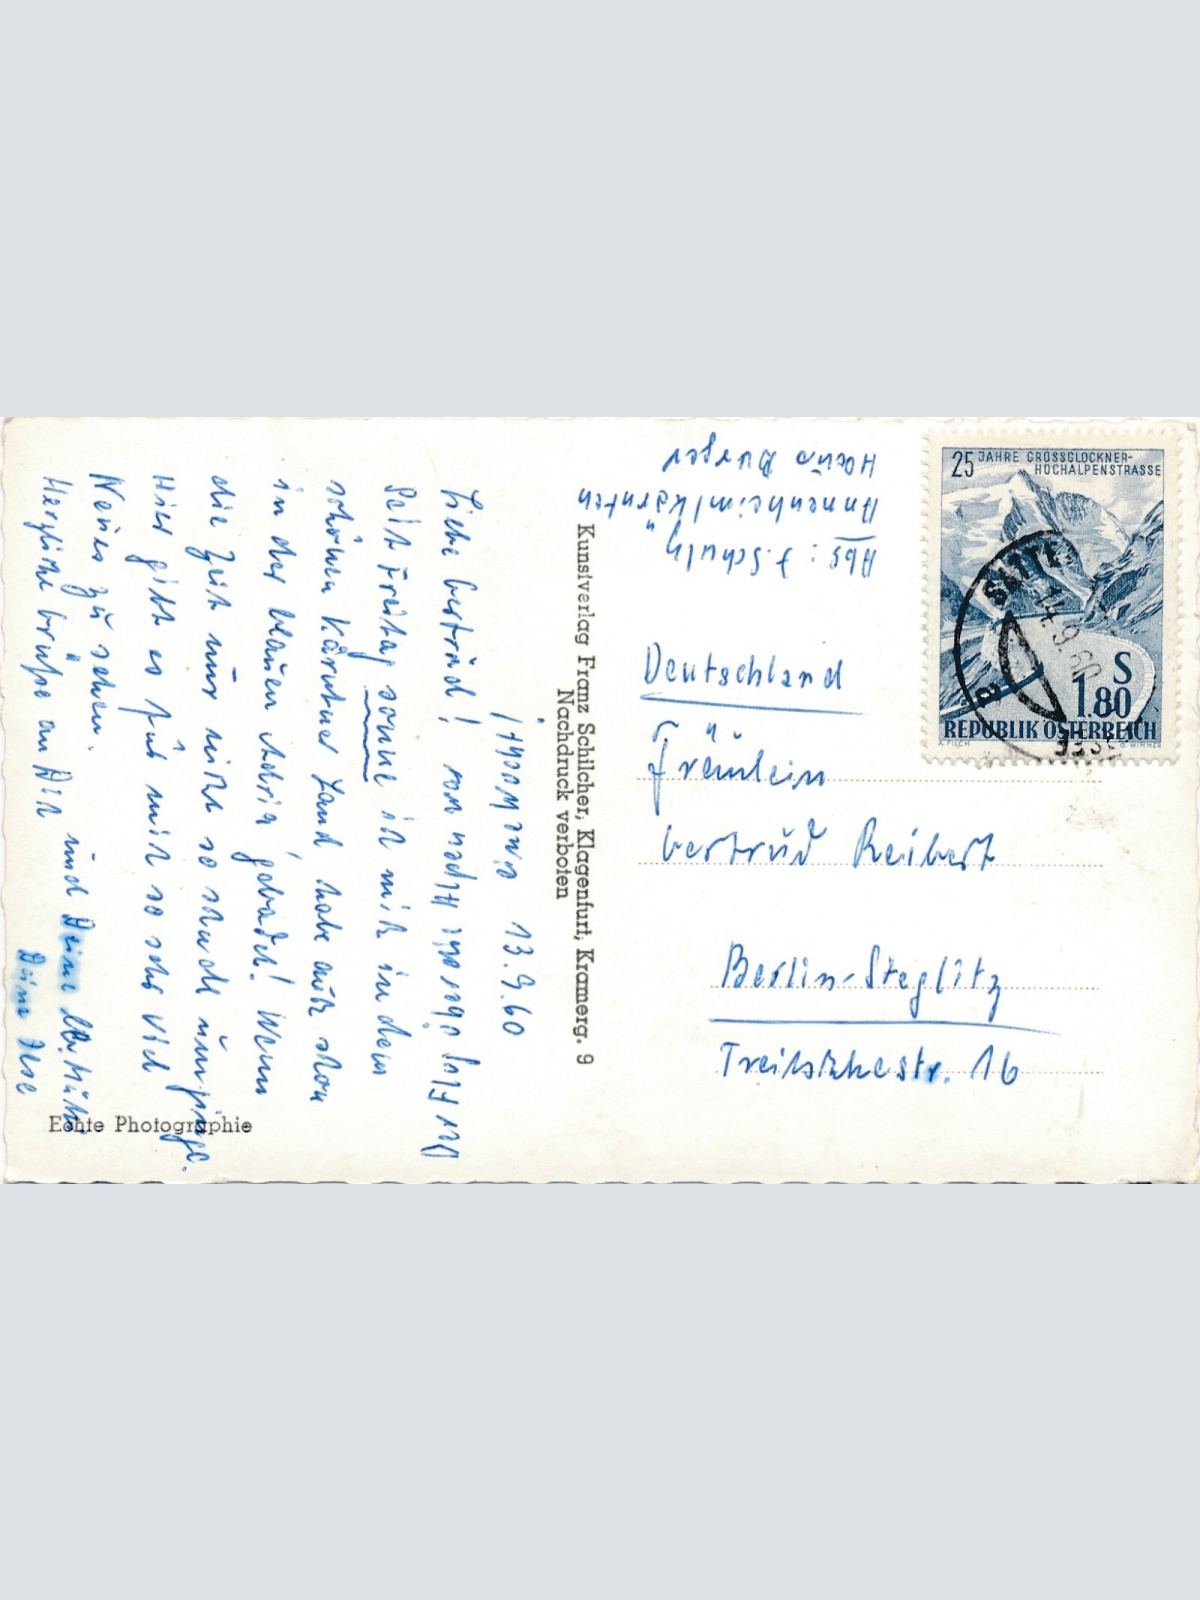 13.9.60
Liebe Gertrud!
Seit Freitag sonne ich mich in dem
schönen Kärntner Land habe auch schon
in der blauen Adria gebadet! Wenn
die Zeit nur nicht so schnell
Hier gibt es für mich so sehr viel
Neues zu sehen.
Herzliche Grüße an Dich und Deine
Deine Ilse
Echte Photographie
Kunstverlag Franz Schilcher, Klagenfurt, Kramerg. 9
Nachdruck verboten
Abs: J. Schulz
Annenheim/Kärnten
Burger
25 JAHRE GROSSGLOCKNER-
HOCHALPENSTRASSE
14.9.60
S
1.80
REPUBLIK ÖSTERREICH
A. PILCH G. WIMMER
Deutschland
Fräulein
Gertrud Reibert
Berlin-Steglitz
Treitschkestr. 16